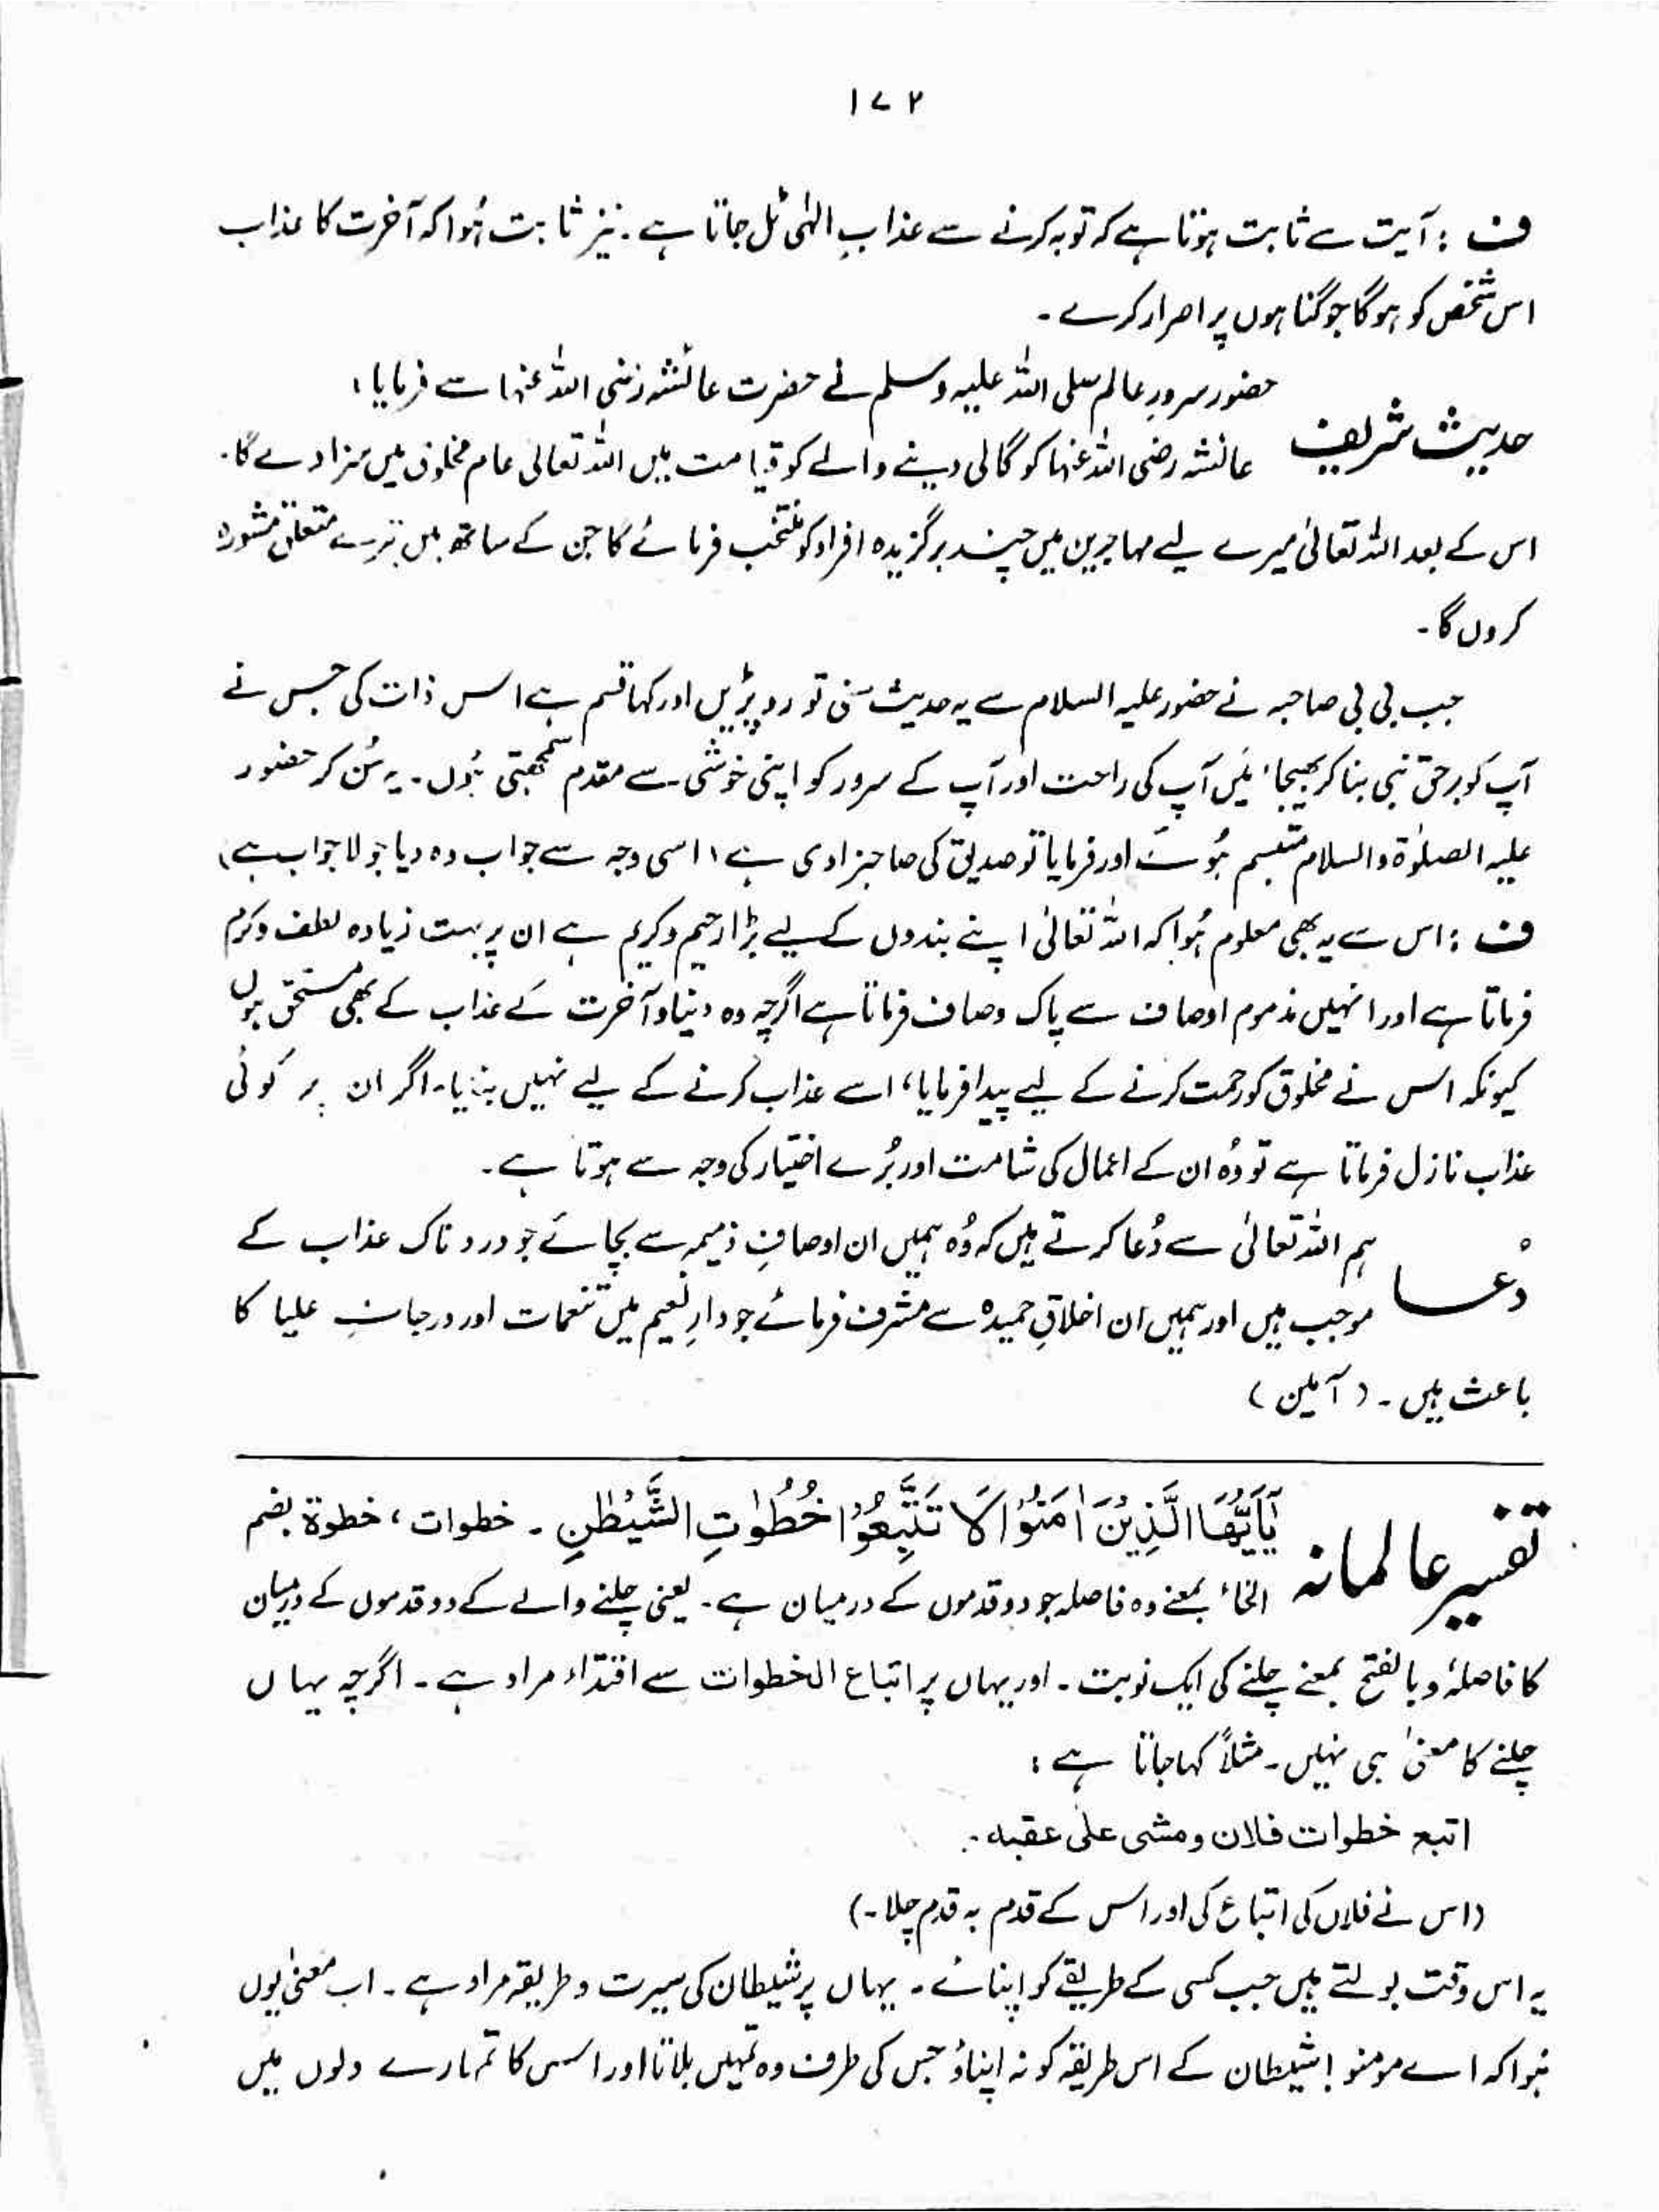 ۱۷۲
ف : آیت سے ثابت ہوتا ہے کہ توبہ کرنے سے عذابِ الٰہی ٹل جاتا ہے۔ نیز ثابت ہُوا کہ آخرت کا عذاب
اس شخص کو ہوگا جو گناہوں پر اصرار کرے۔
حضور سرورِ عالم صلی اللہ علیہ وسلم نے حضرت عائشہ رضی اللہ عنہا سے فرمایا :
حدیث شریف عائشہ رضی اللہ عنہا کو گالی دینے والے کو قیامت میں اللہ تعالیٰ عام مخلوق میں سزا دے گا۔
اس کے بعد اللہ تعالیٰ میرے لیے مہاجرین میں چند برگزیدہ افراد کو منتخب فرمائے گا جن کے ساتھ میں تیرے متعلق مشورہ
کروں گا۔
جب بی بی صاحبہ نے حضور علیہ السلام سے یہ حدیث سُنی تو رو پڑیں اور کہا قسم ہے اس ذات کی جس نے
آپ کو برحق نبی بنا کر بھیجا، میں آپ کی راحت اور آپ کے سرور کو اپنی خوشی سے مقدم سمجھتی ہُوں۔ یہ سُن کر حضور
علیہ الصلوٰۃ والسلام متبسم ہُوئے اور فرمایا تو صدیق کی صاحبزادی ہے (اسی وجہ سے جواب وہ دیا جو لاجواب ہے)
ف : اس سے یہ بھی معلوم ہُوا کہ اللہ تعالیٰ اپنے بندوں کے لیے بڑا رحیم و کریم ہے ان پر بہت زیادہ لطف و کرم
فرماتا ہے اور انہیں مذموم اوصاف سے پاک و صاف فرماتا ہے اگرچہ وہ دنیا و آخرت کے عذاب کے بھی مستحق ہوں
کیونکہ اس نے مخلوق کو رحمت کرنے کے لیے پیدا فرمایا، اسے عذاب کرنے کے لیے نہیں بنایا۔ اگر ان پر کوئی
عذاب نازل فرماتا ہے تو وُہ ان کے اعمال کی شامت اور بُرے اختیار کی وجہ سے ہوتا ہے۔
دُعا ہم اللہ تعالیٰ سے دُعا کرتے ہیں کہ وُہ ہمیں ان اوصافِ ذمیمہ سے بچائے جو دردناک عذاب کے
موجب ہیں اور ہمیں ان اخلاقِ حمیدہ سے مشرف فرمائے جو دارِ نعیم میں تنعمات اور درجاتِ علیا کا
باعث ہیں۔ (آمین)
تفسیر عالمانہ یٰٓاَیُّھَا الَّذِیْنَ اٰمَنُوْا لَا تَتَّبِعُوْا خُطُوٰتِ الشَّیْطٰنِ ۔ خطوات، خطوۃ بضم
الخاء بمعنے وہ فاصلہ جو دو قدموں کے درمیان ہے۔ یعنی چلنے والے کے دو قدموں کے درمیان
کا فاصلہ و بالفتح بمعنے چلنے کی ایک نوبت۔ اور یہاں پر اتباع الخطوات سے اقتداء مراد ہے۔ اگرچہ یہاں
چلنے کا معنیٰ ہی نہیں۔ مثلاً کہا جاتا ہے :
اتبع خطوات فلان و مشی علیٰ عقبہ۔
(اس نے فلاں کی اتباع کی اور اس کے قدم بہ قدم چلا۔)
یہ اس وقت بولتے ہیں جب کسی کے طریقے کو اپنائے۔ یہاں پر شیطان کی سیرت و طریقہ مراد ہے۔ اب معنیٰ یوں
ہُوا کہ اے مومنو! شیطان کے اس طریقہ کو نہ اپناؤ جس کی طرف وہ تمہیں بلاتا اور اس کا تمہارے دلوں میں